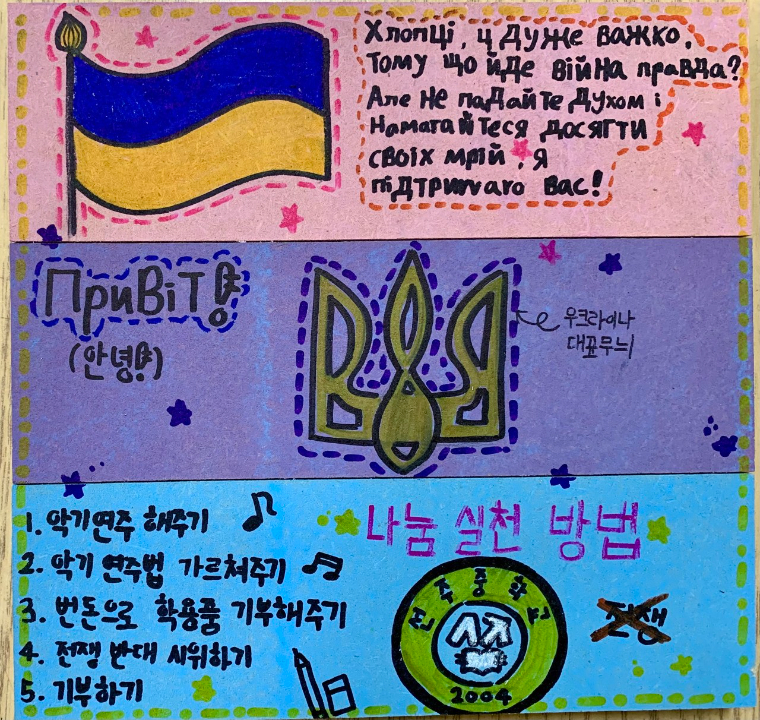 Хлопці, ц Дуже важко.
Тому що йде війна правда?
Але не падайте Духом і
Намагайтеся досягти
своїх мрій, я
підтримаю вас!
Привіт!
(안녕!)
우크라이나
대표무늬
나눔 실천 방법
1. 악기연주 해주기
2. 악기 연주법 가르쳐주기
3. 번돈으로 학용품 기부해주기
4. 전쟁 반대 시위하기
5. 기부하기
전쟁
2004